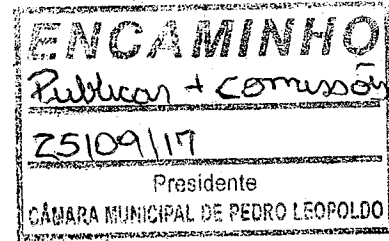 ENCAMINHO
Publicar + comissões
25/09/17
Presidente
CÂMARA MUNICIPAL DE PEDRO LEOPOLDO